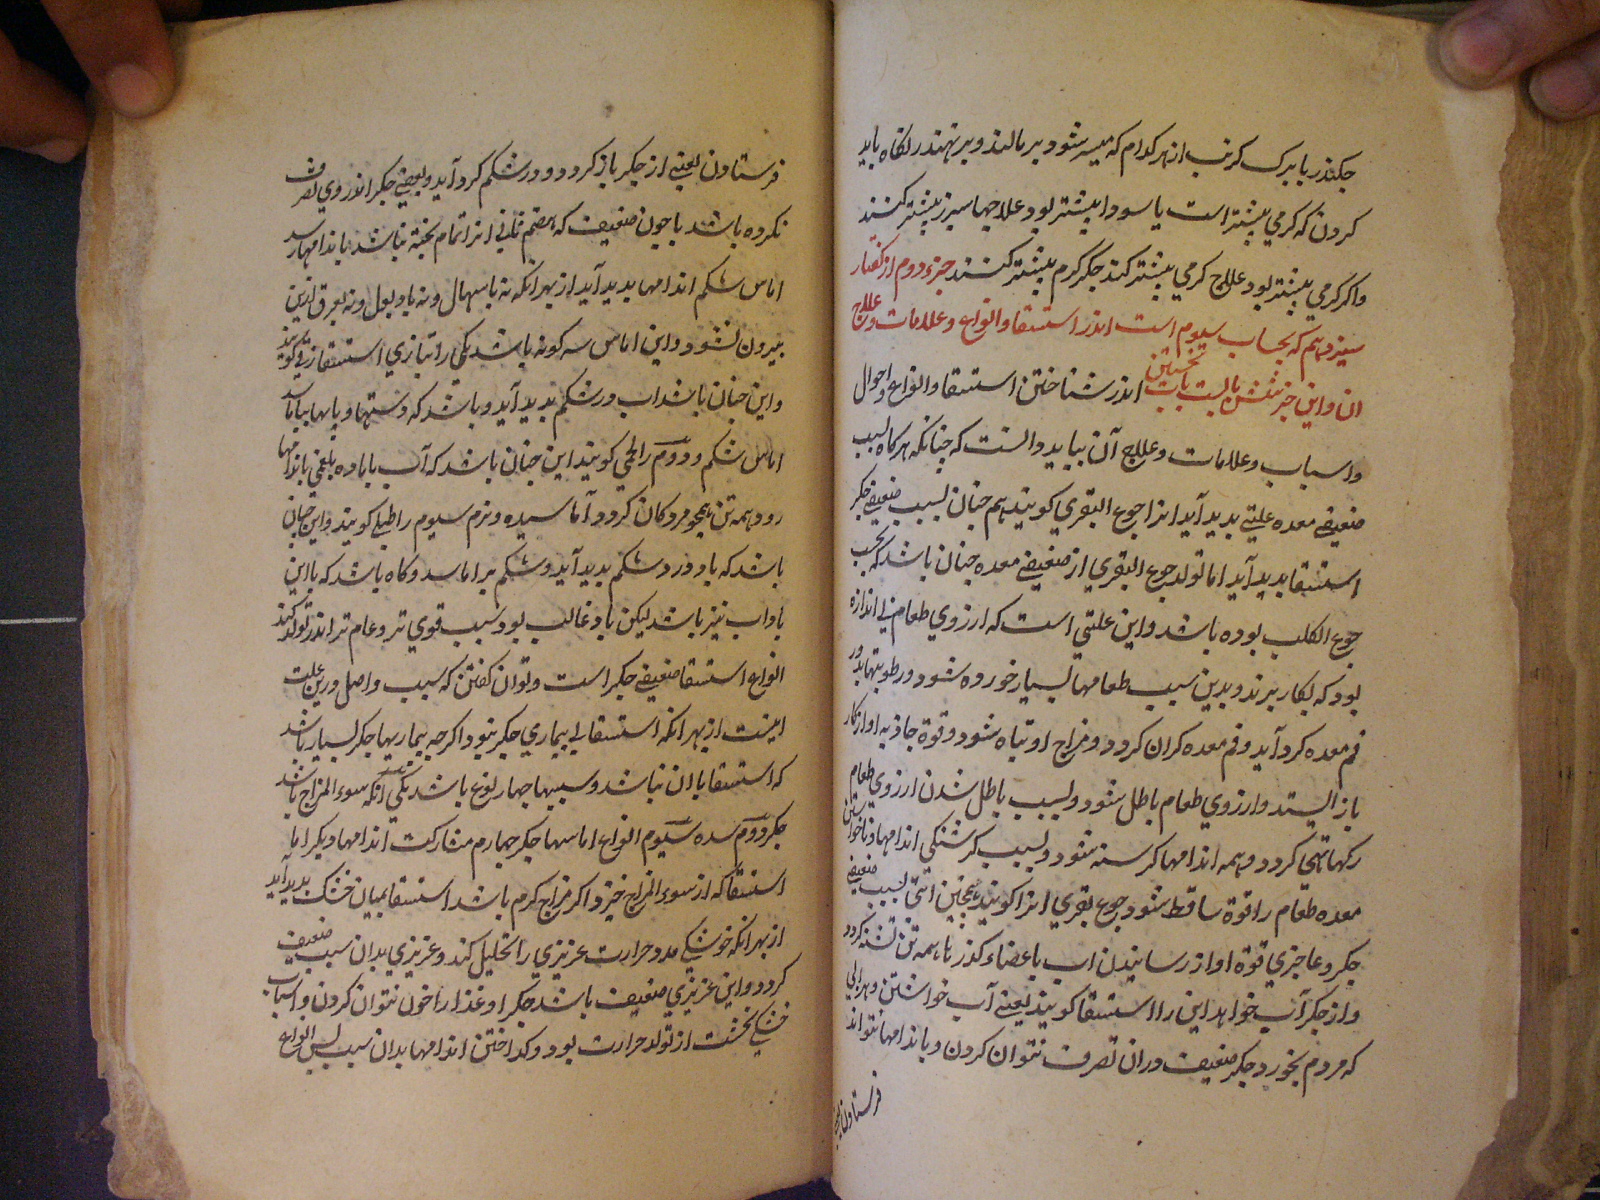 جکندر یا برک کرنب از هر کدام که میسر شود بر مالند و بر نهند در نکاه باید
کردن که کرمی بیشتر است یا سودا بیشتر بود علاجها سپرز بیشتر کنند
واکر کرمی بیشتر بود علاج کرمی بیشتر کند جکر کرم بیشتر کنند جزء دوم از کفتار
سیزدهم که بحساب سیوم است اندر استسقا وانواع و علامات و علاج
ان واین جزء شش بابست باب نخستین اندر شناختن استسقا وانواع واحوال
واسباب وعلامات وعلاج آن بباید دانست که چنانکه هرکاه بسبب
ضعیفی معده علتی بدید آید انرا جوع البقری کویند هم چنان بسبب ضعیفی جکر
استسقا بدید آید اما تولد جوع البقری از ضعیفی معده چنان باشد که بحسب
جوع الکلب بوده باشد واین علتی است که ارزوی طعام بی اندازه
بود که بکار برند و بدین سبب طعامها بسیار خورده شود ورطوبتها بد در
فم معده کرد آید وفم معده کران کردد ومزاج او تباه شود وقوة جاذبه او از کار
باز ایستد وارزوی طعام باطل شود وبسبب باطل شدن ارزوی طعام
رکها تهی کردد وهمه اندامها کرسنه شود وبسبب کرسنکی اندامها وناخواستن
معده طعام را قوة ساقط شود وجوع بقری انرا کویند همچنین اتی بسبب ضعیفی
جکر وعاجزی قوة او از رسانیدن اب باعضاء کذر نا همه تن تشنه کردد
واز جکر آب خواهد این را استسقا کویند یعنی آب خواستن وهر ابی
که مردم بخورد جکر ضعیف دران تصرف نتوان کردن وباندامها نتواند
فرستادن یعنی
فرستادن یعنی از جکر باز کردد ودر شکم کرد آید وبعضی جکر اندر وی تصرف
نکرده باشد یا چون ضعیف که هضم ثانی انرا تمام پخته نباشد باندامها رسد
اماس شکم اندامها بدید آید از بهر انکه نه باسهال ونه بادویول ونه بعرق ازین
بیرون نشود واین اماس سه کونه باشد یکی را بتازی استسقاء زقی کویند
واین چنان باشد اب در شکم بدید آید وباشد که دستها وپایها بیاماسد
اماس شکم ودوم را لحمی کویند این چنان باشد که آب با ماده بلغمی باندامها
رود وهمه تن همچو مردکان کردد آماسیده ونرم سیوم را طبلی کویند واین چنان
باشد که باد در شکم بدید آید وشکم براماسد وکاه باشد که با این
باد اب نیز باشد لیکن باد غالب بود وسبب قوی تر وعام تر اندر تولد کند
انواع استسقا ضعیفی جکر است وتوان کفتن که سبب واصل درین علت
اینست از بهر انکه استسقا بی بیماری جکر نبود اکرچه بیماریها جکر بسیار باشد
که استسقا با ان نباشد وسببها چهار نوع باشد یکی آنکه سوء المزاج باشد
جکر دوم سده سیوم انواع اماسها جکر چهارم مشارکت اندامها دیکر اما
استسقا که از سوء المزاج خیزد اکر مزاج کرم باشد استسقا بمیان خشک بدید آید
از بهر انکه خوشکی مدد حرارت عزیزی را تحلیل کند وعزیزی بدان سبب ضعیف
کردد واین عزیزی ضعیف باشد جکر او غذا را خون نتوان کردن واسباب
خشکی نخست از تولد حرارت بود وکداختن اندامها بدان سبب پس انواع